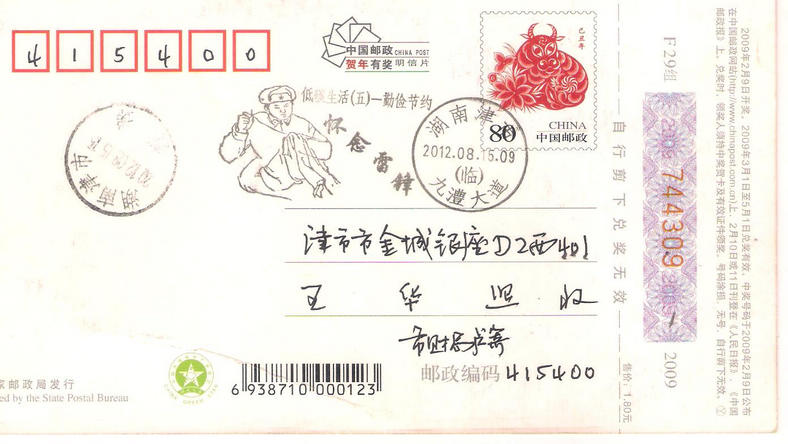 415400
中国邮政 CHINA POST
贺年有奖 明信片
己丑年
CHINA
80 中国邮政
低碳生活(五)—勤俭节约
怀念雷锋
湖南津市
2012.08.15.09
(临)
九澧大道
湖南津市
津市市金城银座D2西401
王 华 收
邮政编码 415400
家邮政局发行
ed by the State Postal Bureau
6 938710 000123
售价: 1.80元
自行剪下兑奖无效
F29组
2009
744309
2009
2009
2009年2月9日开奖。2009年3月1日至5月1日兑奖有效。中奖号码于2009年2月9日公布
在中国邮政网站(http://www.chinapost.com.cn)上,2月10日或11日刊登在《人民日报》、《中国
邮政报》上。兑奖时,领奖人须持中奖贺卡及有效证件领奖。号码涂损、无号、自行剪下无效。